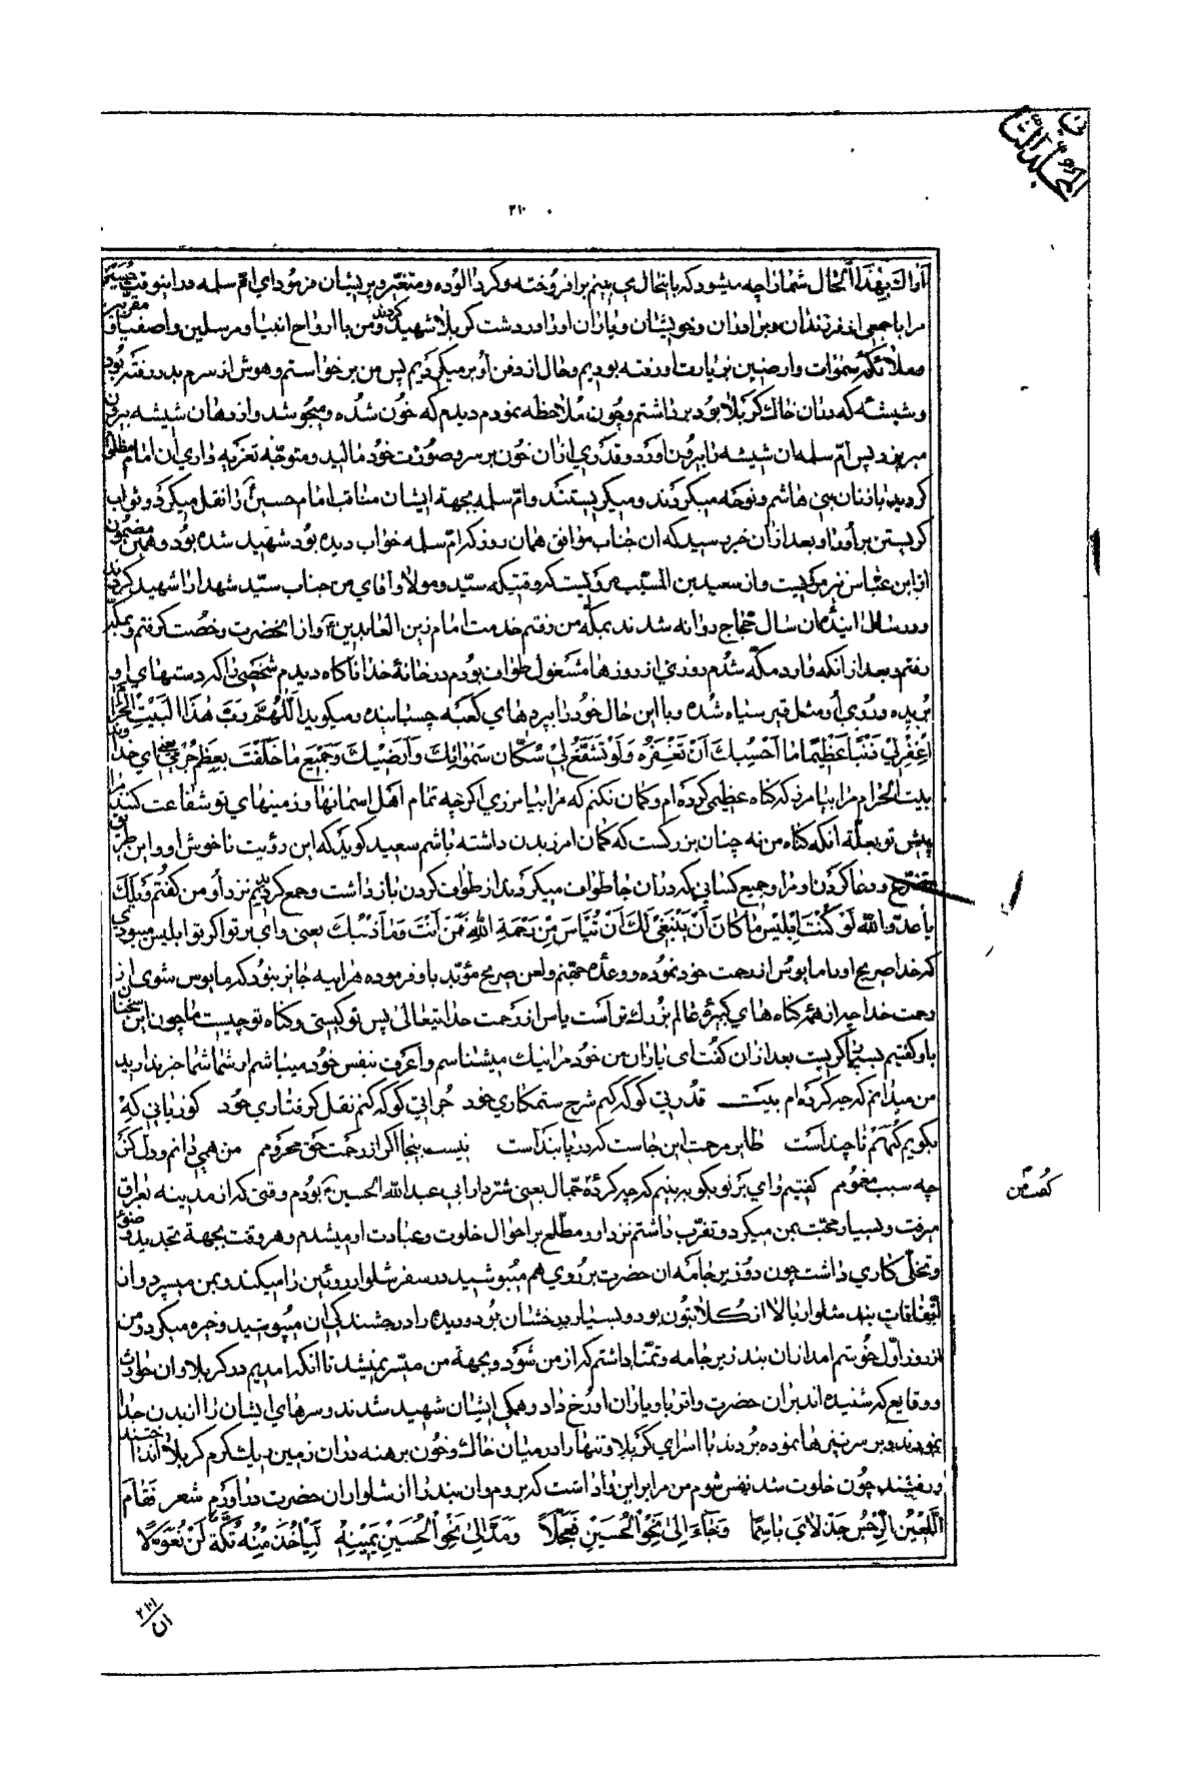 المجلد الثان
ن
۲۱۰
اراك بهذا الحال شما را چه ميشود كه باينحال مي بينم برافروخته و كرد الوده و متغير و پريشان فرمود اي ام سلمه در اينوقت حسين
مرا با جمعي از فرزندان و برادران و خويشان و ياران او را در دشت كربلا شهيد كردند و من با ارواح انبيا و مرسلين و اصفيا
و ملائكه سموات و ارضين بزيارت او رفته بوديم و حال از دفن او بر ميكرديم پس من برخواستم و هوش از سرم بدر رفته بود
و شيشه كه دران خاك كربلا بود برداشتم و چون ملاحظه نمودم ديدم كه خون شده و ميجوشد و از دهان شيشه بيرون
ميريزد پس ام سلمه ان شيشه را بيرون اورد و قدري ازان خون بر سر و صورت خود ماليد و متوجه تعزيه داري ان امام مظلوم
كرديد با زنان بني هاشم و نوحه ميكردند و ميكريستند و ام سلمه بجهة ايشان مناقب امام حسين را نقل ميكرد و ثواب
كريستن بر او را و بعد ازان خبر رسيد كه ان جناب موافق همان روز كه ام سلمه خواب ديده بود شهيد شده بود و همين مضمون
از ابن عباس نيز مرويست و از سعيد بن المسيب مرويست كه وقتيكه سيد و مولا و اقاي من جناب سيد شهدا را شهيد كردند
و در سال اينده ان سال حجاج روانه شدند بمكه من رفتم خدمت امام زين العابدين و از انحضرت رخصت كرفتم و بمكه
رفتم و بعد از انكه وارد مكه شدم روزي از روزها مشغول طواف بودم در خانه خدا ناكاه ديدم شخصي را كه دستهاي او
بريده و روي او مثل قير سياه شده و با اين حال خود را بپرده هاي كعبه چسبانيده و ميكويد اللهم رب هذا البيت الحرام
اغفر لي ذنبا عظيما ما احسبك ان تغفره ولو تشفع لي سكان سمواتك وارضيك وجميع ما خلقت بعظم جرمي يعني اي خداوند
بيت الحرام مرا بيامرز كه كناه عظيمي كرده ام و كمان نكنم كه مرا بيامرزي اكر چه تمام اهل اسمانها و زمينهاي تو شفاعت كنند مرا
پيش تو بعلة انكه كناه من نه چنان بزركست كه كمان امرزيدن داشته باشم سعيد كويد كه اين رؤيت ناخوش او و اين طريق
تضرع و دعا كردن او مرا و جميع كساني كه دران جا طواف ميكردند از طواف كردن بازداشت و جمع كرديم نزد او من كفتم ويلك
يا عدو الله لو كنت ابليس ما كان ان ينبغي لك ان تياس من رحمة الله فمن انت وما ذنبك يعني واي بر تو اكر تو ابليس ميبودي
كه خدا صريح او را مايوس از رحمت خود نموده و وعده جهنم و لعن صريح مؤبد باو فرموده هراينه جايز نبود كه مايوس شوي از
رحمت خدا چه از همه كناه هاي كبيره عالم بزرك تر است ياس از رحمت خدايتعالي پس تو كيستي و كناه تو چيست ما چون اين سخنان
باو كفتيم بسيار كريست بعد ازان كفت اي ياران من خود مرا نيك ميشناسم و اعرف بنفس خود ميباشم از شما شما خبر نداريد
من ميدانم كه چه كرده ام بيت قدرتي كو كه كنم شرح ستمكاري خود جراتي كو كه كنم نقل كرفتاري خود كو زباني كه
بكويم كنهم تا چند است ظاير مرحمت اين جاست كه در پا بند است نيست بيجا اكر از رحمت حق محرومم من همي دانم و دل كز
چه سبب مغمومم كفتيم واي بر تو بكو ببينم كه چه كردهٔ جمال يعني شتردار ابي عبدالله الحسين بودم وقتي كه از مدينه بعراق
ميرفت و بسيار محبت بمن ميكرد و تقرب داشتم نزد او و مطلع بر احوال خلوت و عبادت او ميشدم و هر وقت بجهة تجديد وضو
و تخلي كاري داشت چون دو زير جامه ان حضرت بر روي هم ميپوشيد در سفر شلوار روئين را ميكند و بمن ميسپرد و از
اتفاقات بند شلوار بالا از كلابتون بود و بسيار درخشان بود و ديده را درخشندكي ان ميپوشيد و خيره ميكرد و من
از روز اول خوشم امد ازان بند زير جامه و تمنا داشتم كه از من شود و بجهة من ميسر نميشد تا انكه امديم در كربلا و ان حوادث
و وقايع كه شنيده اند بران حضرت و اقربا و ياران او رخ داد و همكي ايشان شهيد شدند و سرهاي ايشان را از بدن جدا
نمودند و بر سر نيزها نموده بردند با اسراي كربلا و تنها را در ميان خاك و خون برهنه دران زمين كربلا انداختند
و رفتند چون خلوت شد نفس شوم من مرا براين واداشت كه بروم و ان بند را از شلوار ان حضرت دراورم شعر فقام
اللعين الرجس جذلان باسما وجاء الى نحو الحسين فعجلا ومد الى نحو الحسين يمينه لياخذ منه تكة لن تعولا
كفت من
۲۱۰۱
ان